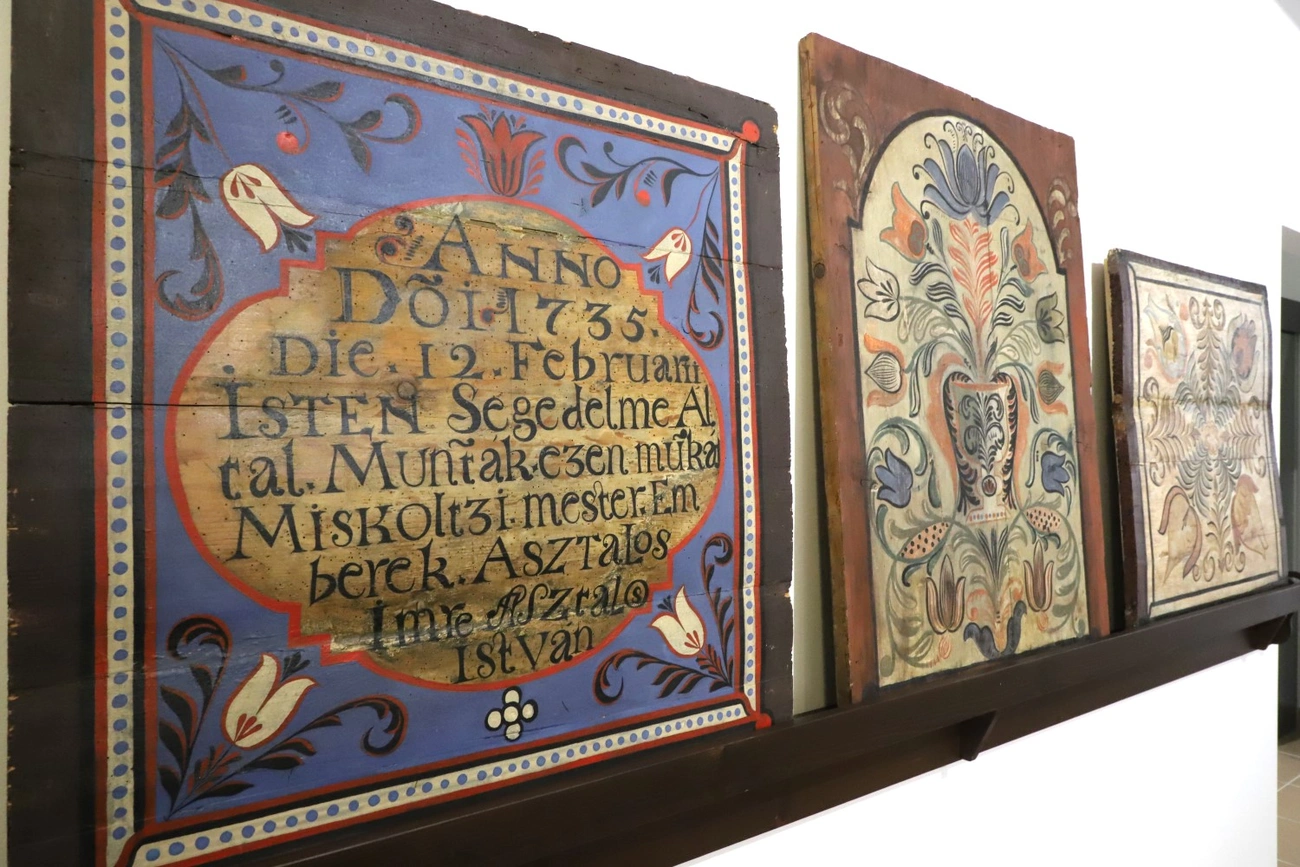 ANNO
Dõi. 1735.
Die. 12. Februarii
İSTEN Segedelme Al,
tal. Muñták. ezen. mũkat
MiSKOltzi. mester. Em
berek. ASZTALOS
Imre ASztalos
Istvan